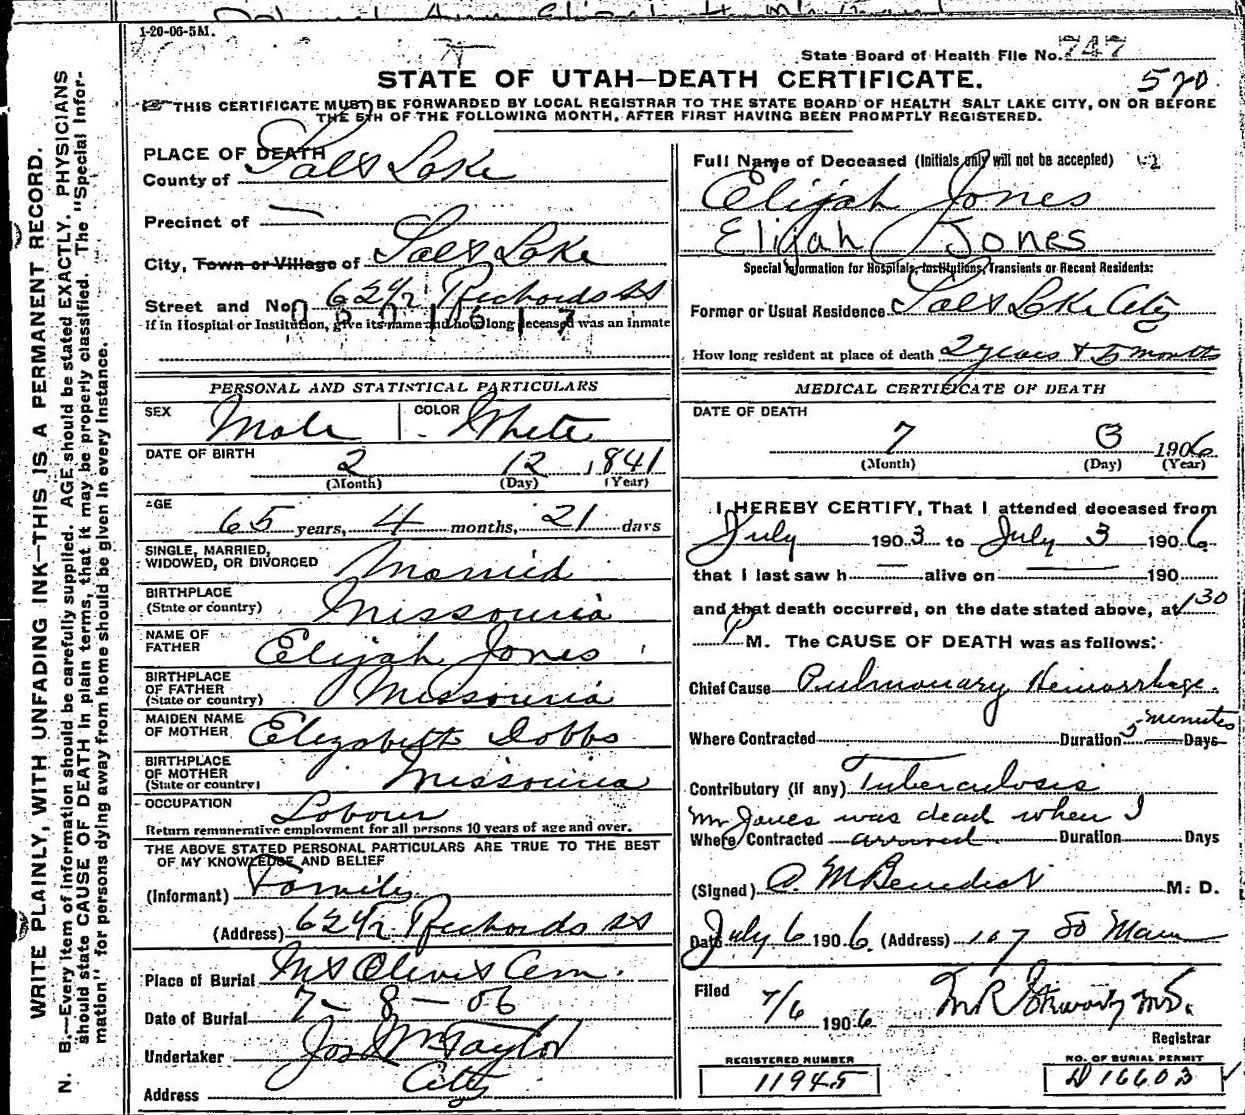 1-20-06-5M.
State Board of Health File No. 747
STATE OF UTAH—DEATH CERTIFICATE.
520
THIS CERTIFICATE MUST BE FORWARDED BY LOCAL REGISTRAR TO THE STATE BOARD OF HEALTH SALT LAKE CITY, ON OR BEFORE
THE 5TH OF THE FOLLOWING MONTH, AFTER FIRST HAVING BEEN PROMPTLY REGISTERED.
WRITE PLAINLY, WITH UNFADING INK—THIS IS A PERMANENT RECORD.
N. B.—Every item of information should be carefully supplied. AGE should be stated EXACTLY. PHYSICIANS
should state CAUSE OF DEATH in plain terms, that it may be properly classified. The "Special Infor-
mation" for persons dying away from home should be given in every instance.
PLACE OF DEATH
County of Salt Lake
Precinct of —
City, Town or Village of Salt Lake
Street and No. 624½ Richards St
If in Hospital or Institution, give its name and how long deceased was an inmate
PERSONAL AND STATISTICAL PARTICULARS
SEX Male COLOR White
DATE OF BIRTH 2 12 1841
(Month) (Day) (Year)
AGE
65 years, 4 months, 21 days
SINGLE, MARRIED,
WIDOWED, OR DIVORCED Married
BIRTHPLACE
(State or country) Missouria
NAME OF
FATHER Elijah Jones
BIRTHPLACE
OF FATHER
(State or country) Missouria
MAIDEN NAME
OF MOTHER Elizabeth Dobbs
BIRTHPLACE
OF MOTHER
(State or country) Missouria
OCCUPATION Labour
Return remunerative employment for all persons 10 years of age and over.
THE ABOVE STATED PERSONAL PARTICULARS ARE TRUE TO THE BEST
OF MY KNOWLEDGE AND BELIEF
(Informant) Family
(Address) 624½ Richards St
Place of Burial Mt Olivet Cem.
Date of Burial 7-8-06
Undertaker Jos Wm Taylor
Address City
Full Name of Deceased (Initials only will not be accepted)
Elijah Jones
Elijah Jones
Special Information for Hospitals, Institutions, Transients or Recent Residents:
Former or Usual Residence Salt Lake City
How long resident at place of death 2 years & 5 months
MEDICAL CERTIFICATE OF DEATH
DATE OF DEATH
7 3 1906
(Month) (Day) (Year)
I HEREBY CERTIFY, That I attended deceased from
July 1903 to July 3 1906
that I last saw h — alive on — 190
and that death occurred, on the date stated above, at 1 30
P M. The CAUSE OF DEATH was as follows:
Chief Cause Pulmonary Hemorrhage.
Where Contracted Duration 5 minutes Days
Contributory (if any) Tuberculosis
Mr Jones was dead when I
Where Contracted arrived Duration Days
(Signed) A. M Benedict M. D.
Date July 6 1906. (Address) 107 So Main
Filed
7/6 1906
Registrar
REGISTERED NUMBER
11945
NO. OF BURIAL PERMIT
D 16603